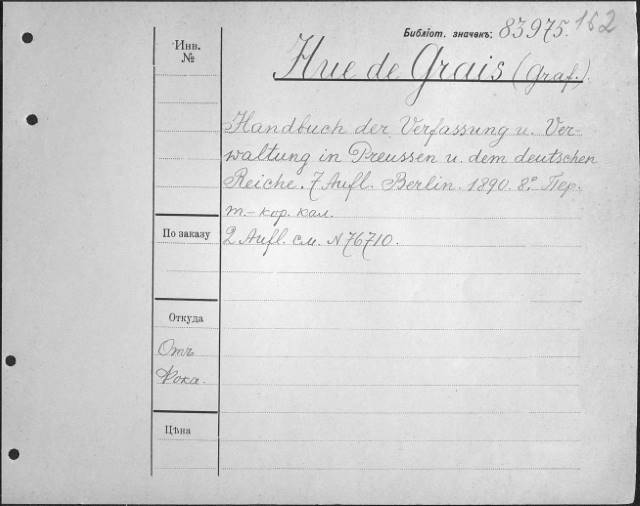 Библіот. значекъ: 83975. 162
Инв.
№
Hue de Grais (Graf.).
Handbuch der Verfassung u. Ver-
waltung in Preussen u. dem deutschen
Reiche. 7 Aufl. Berlin. 1890. 8.° Пер.
т.-кор. кал.
По заказу
2 Aufl. см. N 76710.
Откуда
Отъ
Рока.
Цѣна